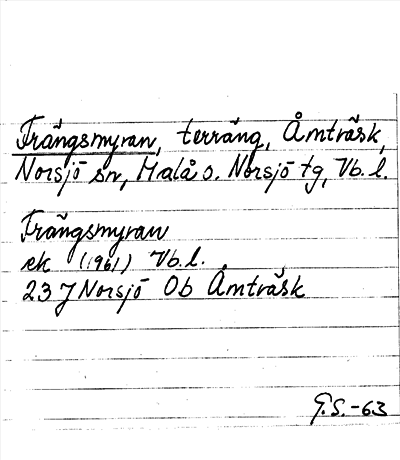 Frängsmyran, terräng, Åmträsk,
Norsjö sn, Malå o. Norsjö tg, Vb. l.
Frängsmyran
ek (1961) Vb. l.
23 J Norsjö Ob Åmträsk
G.S.-63